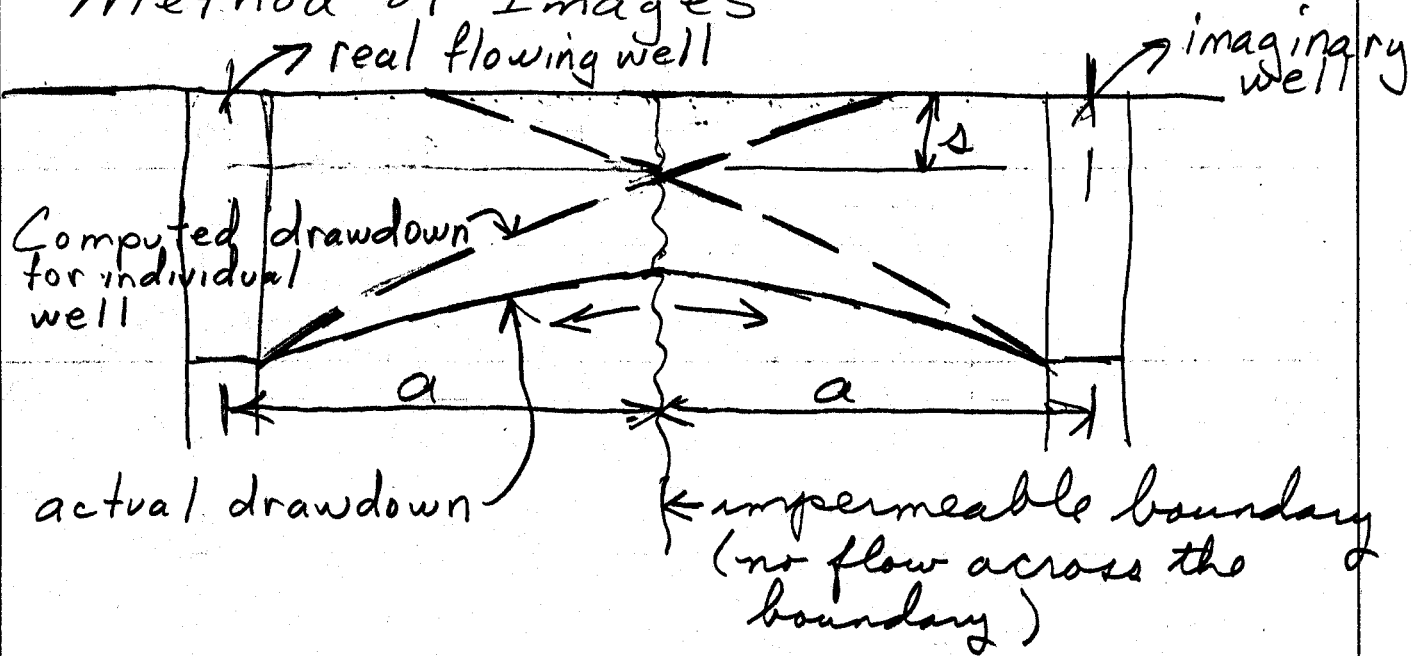 Method of Images
real flowing well
imaginary
well
s
Computed drawdown
for individual
well
a
a
actual drawdown
impermeable boundary
(no flow across the
boundary)